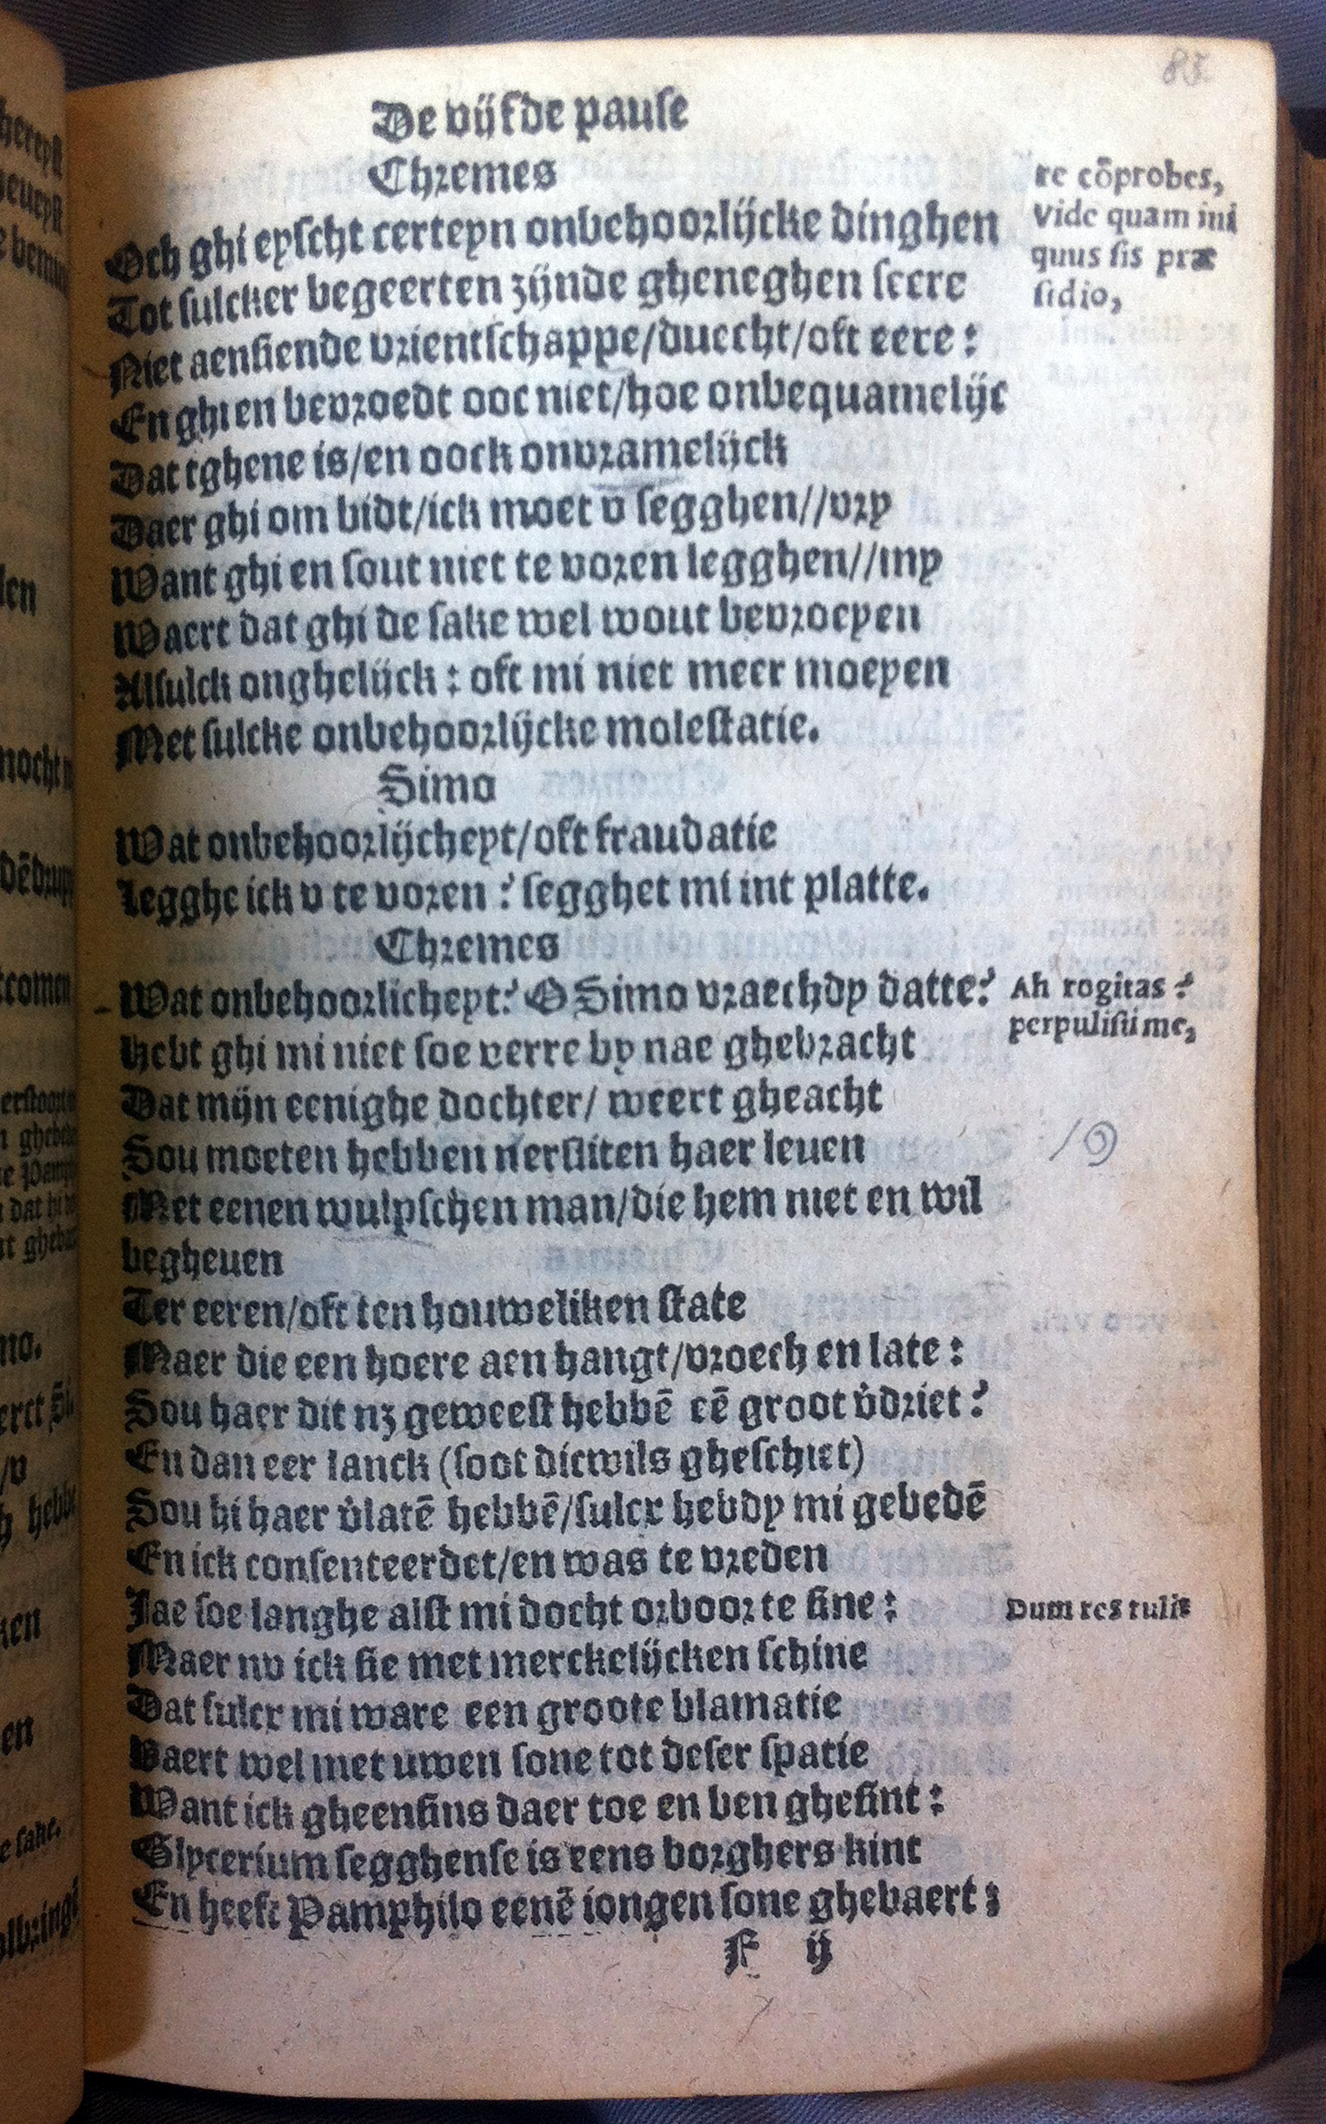 85
De vijfde pause
Chremes
Och ghi eyscht certeyn onbehoorlijcke dinghen
Tot sulcker begeerten zijnde gheneghen seere
Niet aensiende vrientschappe/duecht/oft eere:
En ghi en bevroedt ooc niet/hoe onbequamelijc
Dat tghene is/en oock onvramelijck
Daer ghi om bidt/ick moet v segghen//vry
Want ghi en sout niet te voren legghen//my
Waert dat ghi de sake wel wout bevroeyen
Alsulck onghelijck: oft mi niet meer moeyen
Met sulcke onbehoorlijcke molestatie.
re cōprobes,
Vide quam ini
quus sis præ
sidio,
Simo
Wat onbehoorlijcheyt/oft fraudatie
Legghe ick v te voren? segghet mi int platte.
Chremes
Wat onbehoorlicheyt? O Simo vraechdy datte?
Hebt ghi mi niet soe verre by nae ghebracht
Ah rogitas?
perpulisti me,
Dat mijn eenighe dochter/ weert gheacht
Sou moeten hebben versliten haer leuen
Met eenen wulpschen man/die hem niet en wil
begheuen
19
Ter eeren/oft ten houweliken state
Maer die een hoere aen hangt/vroech en late:
Sou haer dit nz geweest hebbē eē groot v̄driet?
En dan eer lanck (soot dicwils gheschiet)
Sou hi haer v̄latē hebbē/sulcx hebdy mi gebedē
En ick consenteerdet/en was te vreden
Jae soe langhe alst mi docht orboor te sine:
Dum res tulit
Maer nv ick sie met merckelijcken schine
Dat sulcx mi ware een groote blamatie
Vaert wel met uwen sone tot deser spatie
Want ick gheensins daer toe en ben ghesint:
Glycerium segghense is eens borghers kint
En heeft Pamphilo eenē iongen sone ghebaert;
F ij